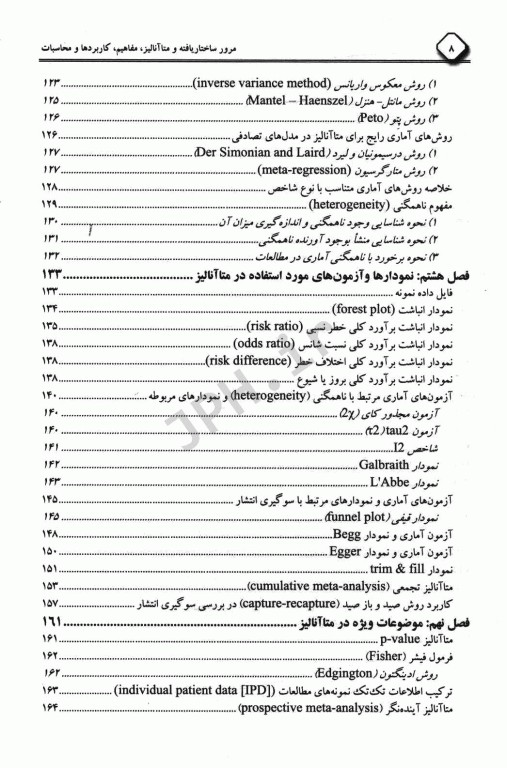 ۸ مرور ساختاریافته و متاآنالیز، مفاهیم، کاربردها و محاسبات
۱) روش معکوس واریانس (inverse variance method)........................۱۲۳
۲) روش مانتل- هنزل (Mantel – Haenszel)........................۱۲۵
۳) روش پتو (Peto)........................۱۲۶
روش‌های آماری رایج برای متاآنالیز در مدل‌های تصادفی........................۱۲۶
۱) روش درسیمونیان و لیرد (Der Simonian and Laird)........................۱۲۷
۲) روش متارگرسیون (meta-regression)........................۱۲۷
خلاصه روش‌های آماری متناسب با نوع شاخص........................۱۲۸
مفهوم ناهمگنی (heterogeneity)........................۱۲۹
۱) نحوه شناسایی وجود ناهمگنی و اندازه‌گیری میزان آن........................۱۳۰
۲) نحوه شناسایی منشأ بوجود آورنده ناهمگنی........................۱۳۱
۳) نحوه برخورد با ناهمگنی آماری در مطالعات........................۱۳۲
فصل هشتم: نمودارها وآزمون‌های مورد استفاده در متاآنالیز........................۱۳۳
فایل داده نمونه........................۱۳۳
نمودار انباشت (forest plot)........................۱۳۴
نمودار انباشت برآورد کلی خطر نسبی (risk ratio)........................۱۳۵
نمودار انباشت برآورد کلی نسبت شانس (odds ratio)........................۱۳۸
نمودار انباشت برآورد کلی اختلاف خطر (risk difference)........................۱۳۸
نمودار انباشت برآورد کلی بروز یا شیوع........................۱۳۸
آزمون‌های آماری مرتبط با ناهمگنی (heterogeneity) و نمودارهای مربوطه........................۱۴۰
آزمون مجذور کای (2χ)........................۱۴۰
آزمون tau2 (τ2)........................۱۴۰
شاخص I2........................۱۴۱
نمودار Galbraith........................۱۴۲
نمودار L'Abbe........................۱۴۳
آزمون‌های آماری و نمودارهای مرتبط با سوگیری انتشار........................۱۴۵
نمودار قیفی (funnel plot)........................۱۴۵
آزمون آماری و نمودار Begg........................۱۴۸
آزمون آماری و نمودار Egger........................۱۵۰
نمودار trim & fill........................۱۵۱
متاآنالیز تجمعی (cumulative meta-analysis)........................۱۵۳
کاربرد روش صید و باز صید (capture-recapture) در بررسی سوگیری انتشار........................۱۵۷
فصل نهم: موضوعات ویژه در متاآنالیز........................۱۶۱
متاآنالیز p-value........................۱۶۱
فرمول فیشر (Fisher)........................۱۶۲
روش ادینگتون (Edgington)........................۱۶۲
ترکیب اطلاعات تک‌تک نمونه‌های مطالعات (individual patient data [IPD])........................۱۶۳
متاآنالیز آینده‌نگر (prospective meta-analysis)........................۱۶۴
JPH.ir